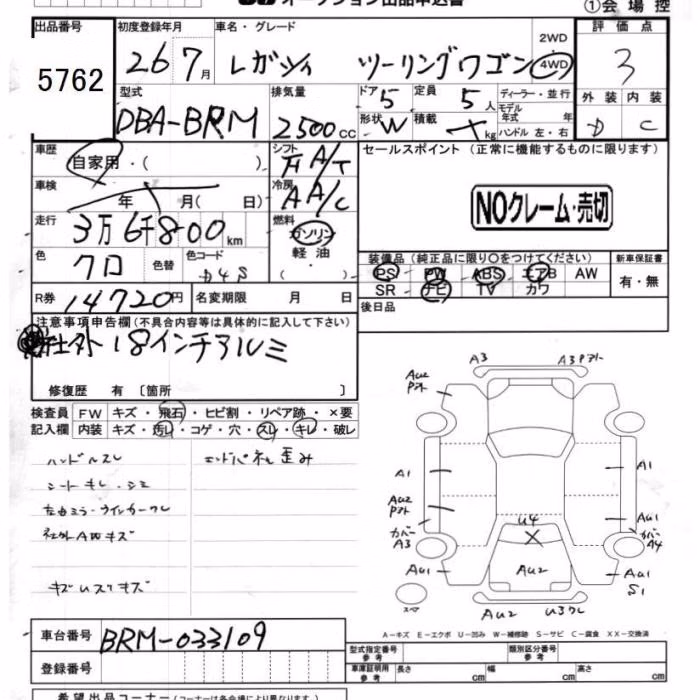 オークション出品申込書
①会場控
出品番号 初度登録年月 車名・グレード 2WD 4WD 評価点
5762 26 7月 レガシィ ツーリングワゴン 3
型式 排気量 ドア 5 定員 5人 ディーラー・並行 外装 内装
DBA-BRM 2500cc 形状 W 積載 kg モデル年式 年 D C
ハンドル 左・右
車歴 自家用・( ) シフト F A/T セールスポイント (正常に機能するものに限ります)
車検 年 月( 日) 冷房 A A/C
NOクレーム・売切
走行 3万6千800km 燃料 ガソリン 軽油 ・( )
色 クロ 色替 色コード D4S
装備品 (純正品に限り○をつけてください) 新車保証書
PS PW ABS エアB AW 有・無
SR ナビ TV カワ
R券 14720円 名変期限 月 日 後日品
注意事項申告欄(不具合内容等は具体的に記入して下さい)
社外18インチアルミ
修復歴 有 〔箇所 〕
検査員 FW キズ・飛石・ヒビ割・リペア跡・×要
記入欄 内装 キズ・汚レ・コゲ・穴・スレ・キレ・破レ
ハンドルスレ
シートキレ・シミ
社外A四キズ
A3
A3
Au2
A1
A1
Au2
Au1
カバー
A3
カバー
A4
U4
Au1
Au2
Au1
S1
スペア
Au2
A-キズ E-エクボ U-凹み W-補修跡 S-サビ C-腐食 XX-交換済
車台番号 BRM-033109
登録番号
型式指定番号 参考 類別区分番号 参考
車庫証明用 参考 長さ cm 幅 cm 高さ cm
希望出品コーナー (コーナーは各会場により異なります)